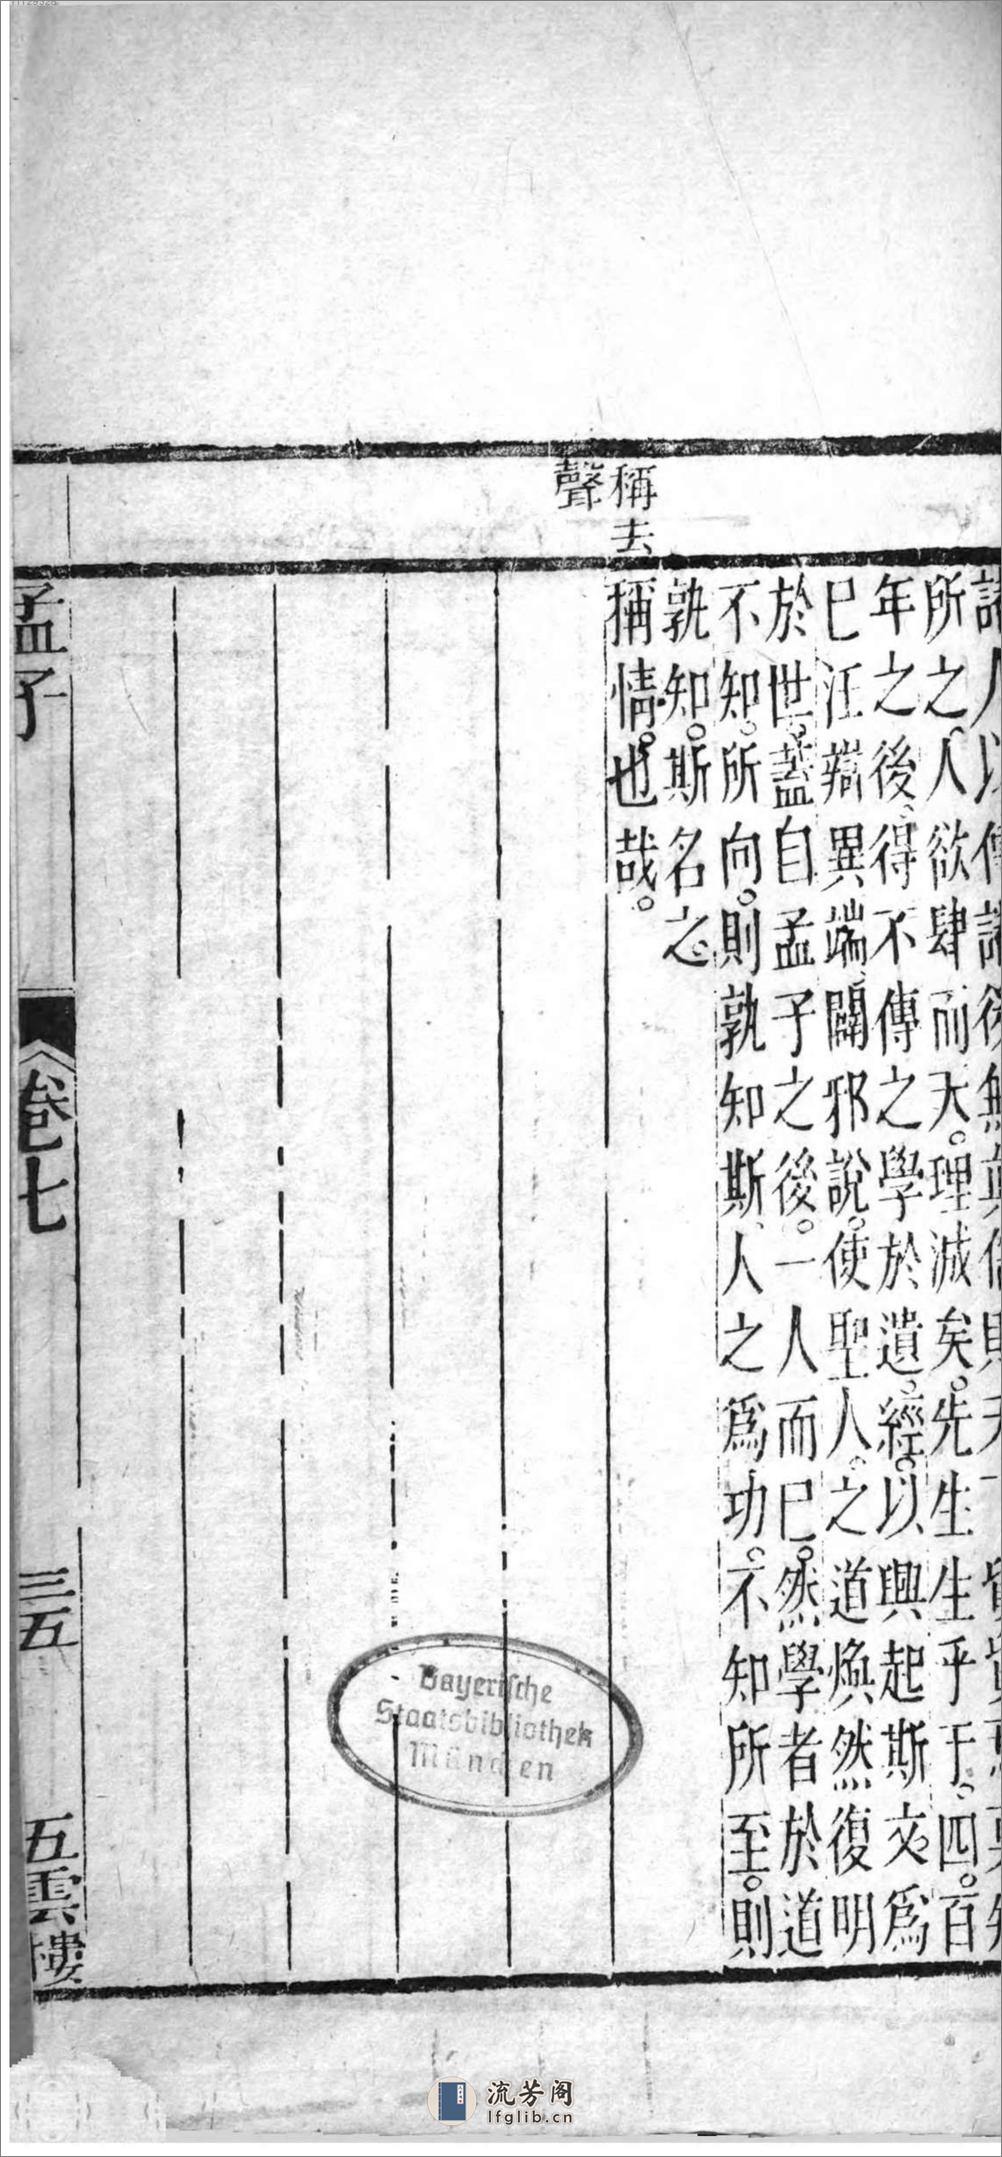 稱去
聲
諸人以傳諸後無真儒則天下貿貿焉莫知
所之人欲肆而天理滅矣先生生乎千四百
年之後得不傳之學於遺經以興起斯文爲
已任辯異端闢邪說使聖人之道煥然復明
於世蓋自孟子之後一人而已然學者於道
不知所向則孰知斯人之爲功不知所至則
孰知斯名之
稱情也哉
孟子 卷七 三五 五雲樓
Bayerische
Staatsbibliothek
München
流芳阁
lfglib.cn